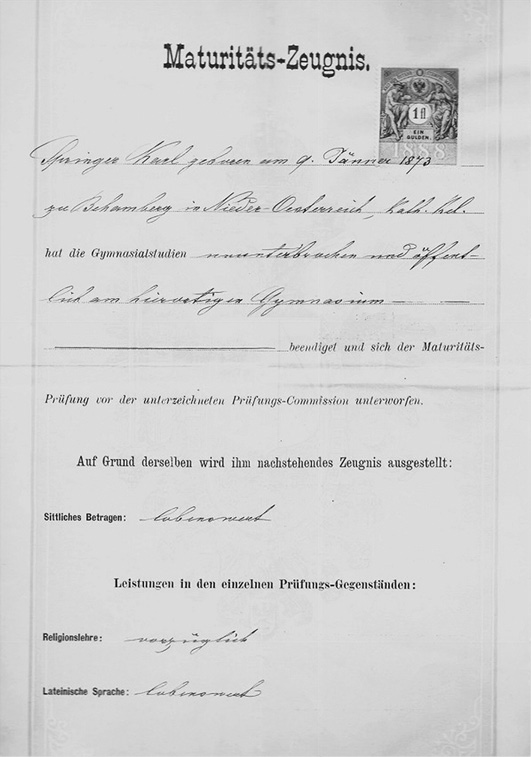 Maturitäts-Zeugnis.
1 fl
EIN
GULDEN.
1888
Springer Karl geboren am 9. Jänner 1873
zu Behamberg in Nieder-Oesterreich, kath. Rel.
hat die Gymnasialstudien ununterbrochen und öffent-
lich am hierortigen Gymnasium
beendiget und sich der Maturitäts-
Prüfung vor der unterzeichneten Prüfungs-Commission unterworfen.
Auf Grund derselben wird ihm nachstehendes Zeugnis ausgestellt:
Sittliches Betragen: lobenswert
Leistungen in den einzelnen Prüfungs-Gegenständen:
Religionslehre: vorzüglich
Lateinische Sprache: lobenswert